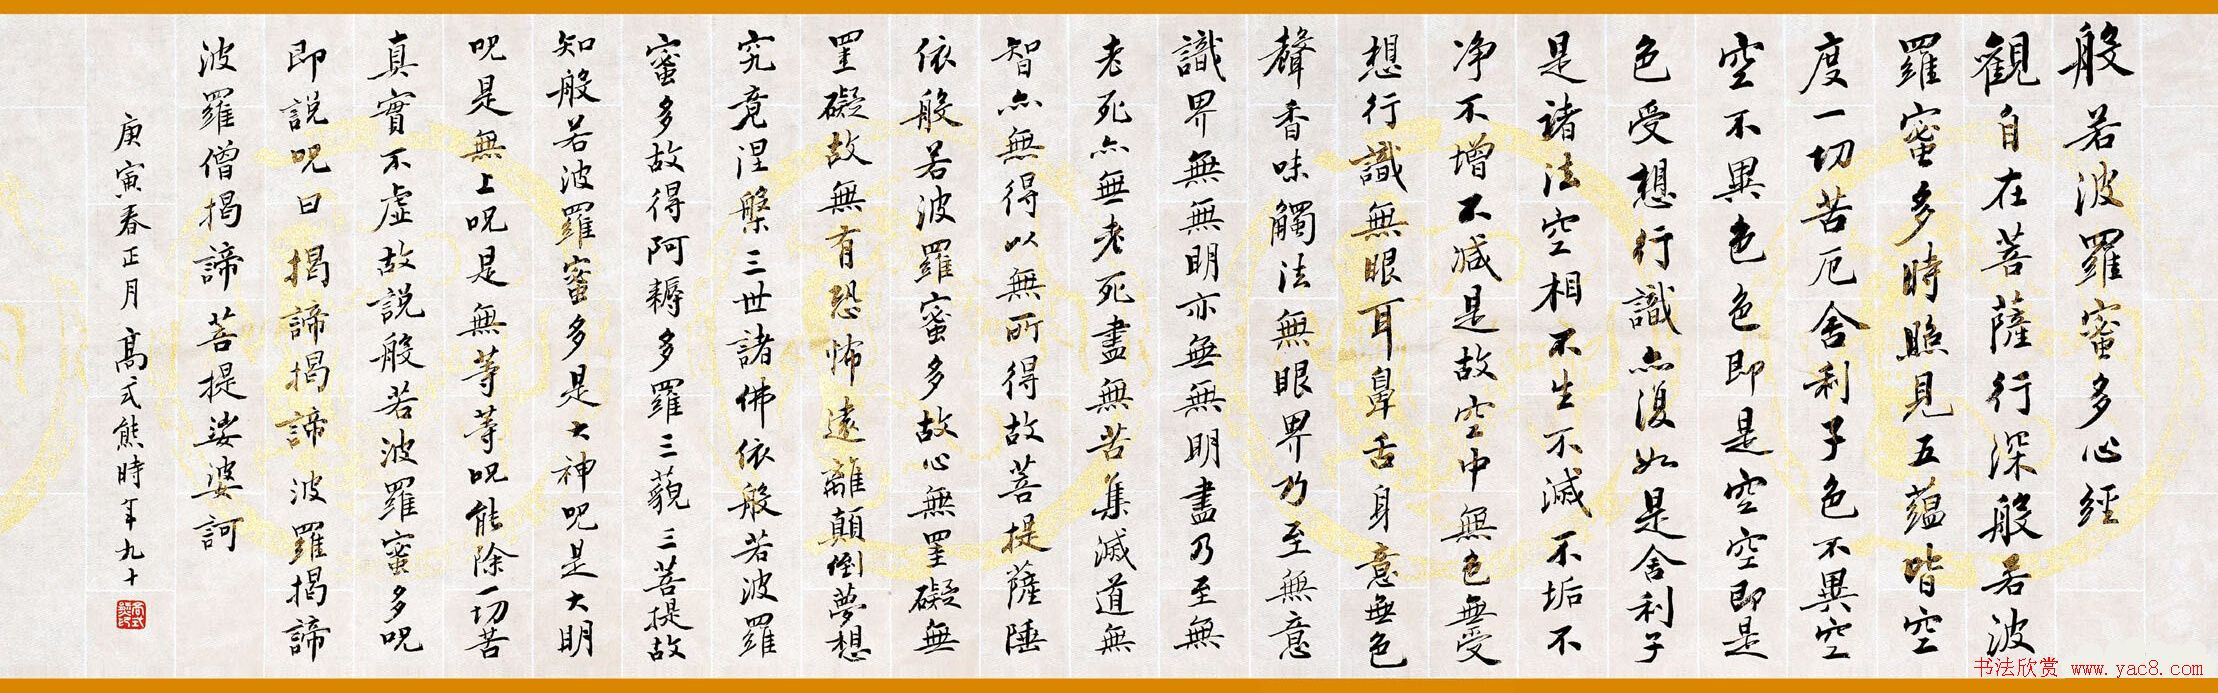 般若波羅蜜多心經
觀自在菩薩行深般若波
羅蜜多時照見五蘊皆空
度一切苦厄舍利子色不異空
空不異色色即是空空即是
色受想行識亦復如是舍利子
是諸法空相不生不滅不垢不
净不增不减是故空中無色無受
想行識無眼耳鼻舌身意無色
聲香味觸法無眼界乃至無意
識界無無明亦無無明盡乃至無
老死亦無老死盡無苦集滅道無
智亦無得以無所得故菩提薩埵
依般若波羅蜜多故心無罣礙無
罣礙故無有恐怖遠離顛倒夢想
究竟涅槃三世諸佛依般若波羅
蜜多故得阿耨多羅三藐三菩提故
知般若波羅蜜多是大神呪是大明
呪是無上呪是無等等呪能除一切苦
真實不虛故説般若波羅蜜多呪
即説呪曰揭諦揭諦波羅揭諦
波羅僧揭諦菩提娑婆訶
庚寅春正月高式熊時年九十
书法欣赏 www.yac8.com